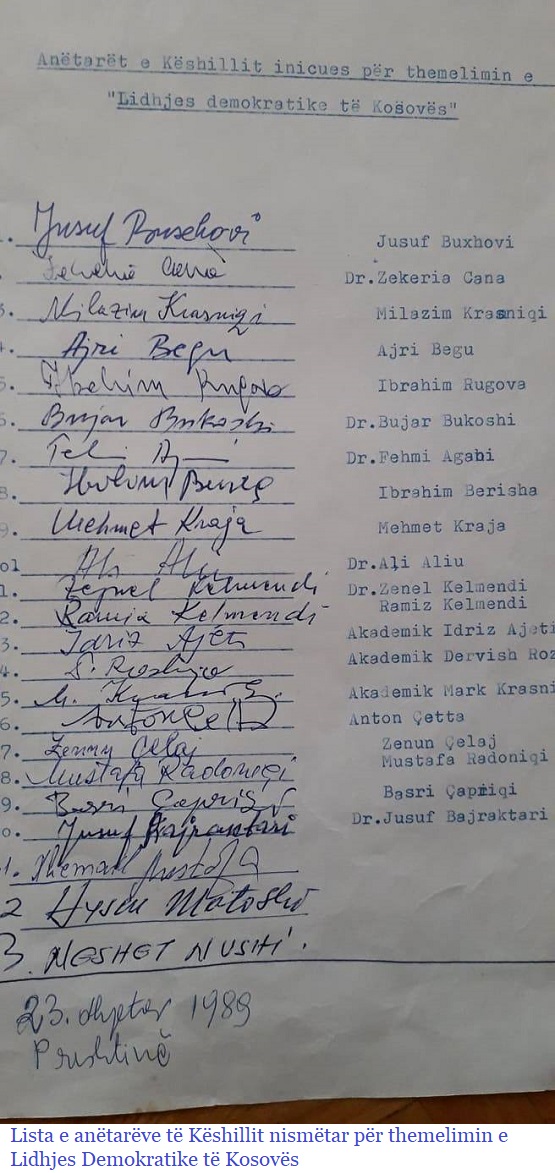 Anëtarët e Këshillit inicues për themelimin e
"Lidhjes demokratike të Kosovës"
Jusuf Buxhovi Jusuf Buxhovi
Dr.Zekeria Cana
3. Milazim Krasniqi Milazim Krasniqi
4. Ajri Begu Ajri Begu
5. Ibrahim Rugova Ibrahim Rugova
6. Bujar Bukoshi Dr.Bujar Bukoshi
7. Dr.Fehmi Agani
8. Ibrahim Berisha
9. Mehmet Kraja Mehmet Kraja
Ali Aliu Dr.Ali Aliu
1. Zejnel Kelmendi Dr.Zenel Kelmendi
2. Ramiz Kelmendi Ramiz Kelmendi
3. Idriz Ajeti Akademik Idriz Ajeti
4. Akademik Dervish Roz
5. Akademik Mark Krasni
6. Anton Çetta
7. Zenun Çelaj Zenun Çelaj
8. Mustafa Radoniqi Mustafa Radoniqi
9. Basri Çapriqi Basri Çapriqi
0. Jusuf Bajraktari Dr.Jusuf Bajraktari
1. Xhemail Mustafa
2 Hysen Matoshi
3. NEXHET NUSHI.
23. dhjetor 1989
Prishtinë
Lista e anëtarëve të Këshillit nismëtar për themelimin e
Lidhjes Demokratike të Kosovës